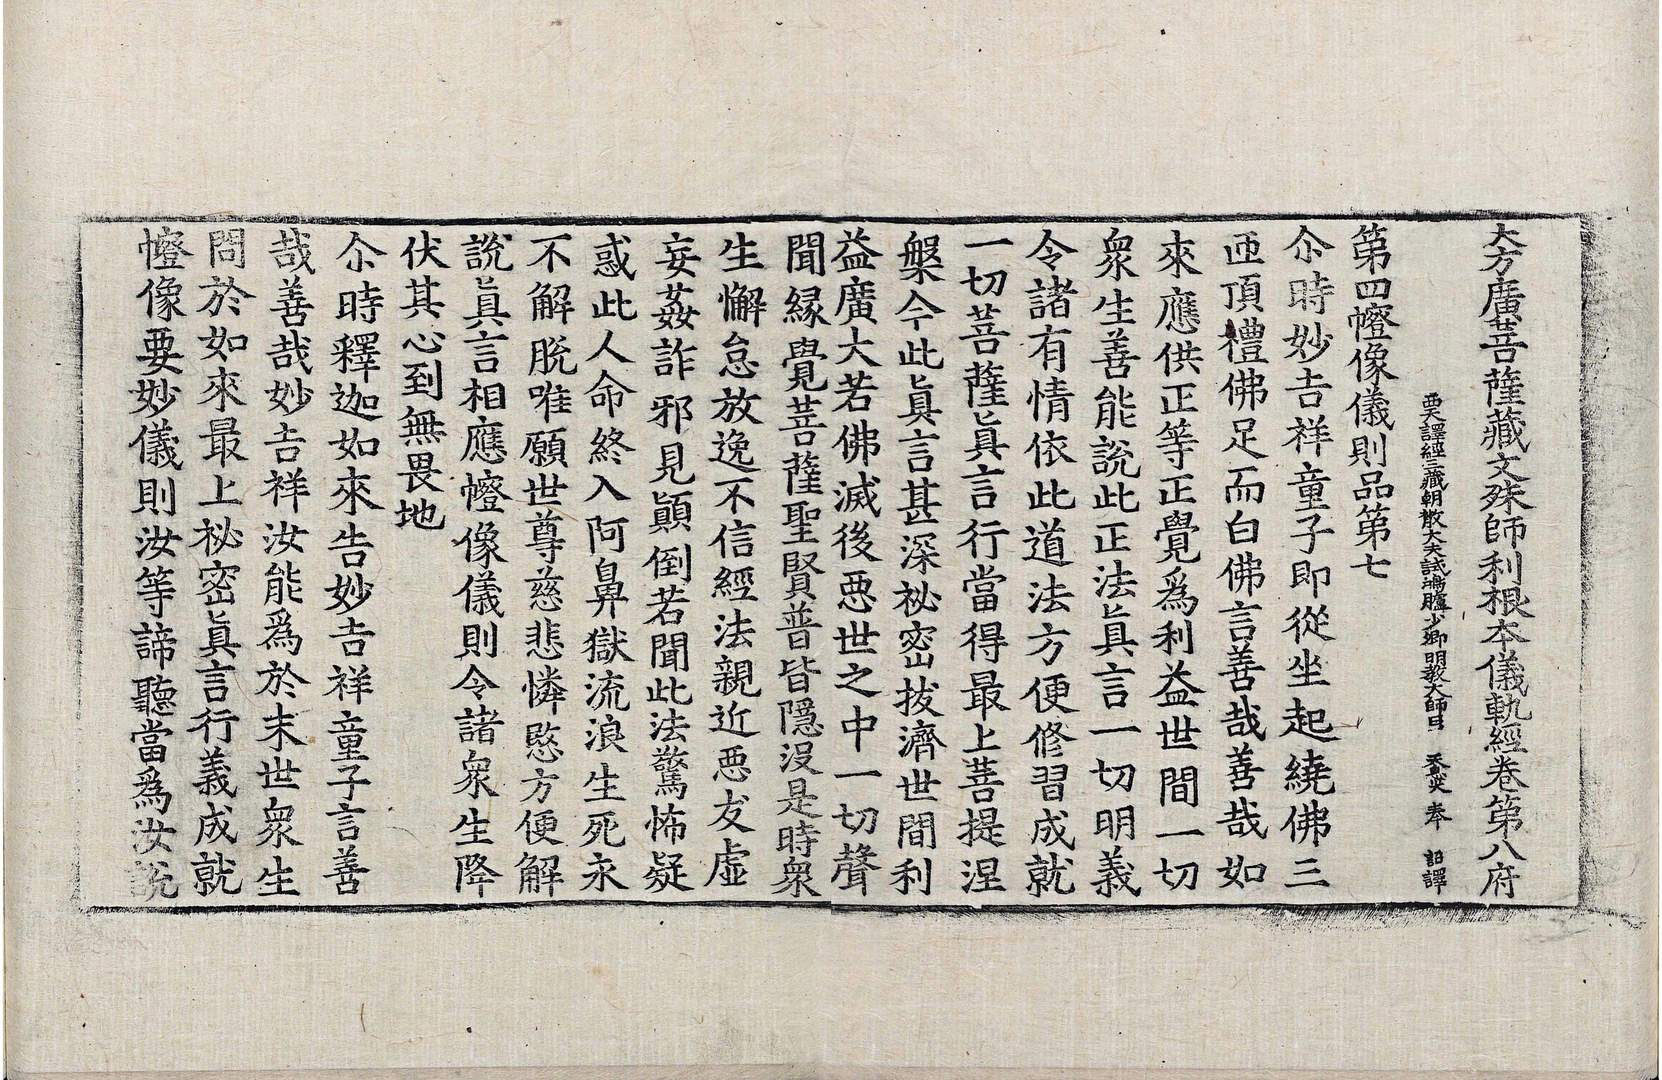 大方廣菩薩藏文殊師利根本儀軌經卷第八府
西天譯經三藏朝散大夫試鴻臚少卿明敎大師臣 天息災 奉 詔譯
第四㡧像儀則品第七
尒時妙吉祥童子即從坐起繞佛三
迊頂禮佛足而白佛言善哉善哉如
來應供正等正覺爲利益世間一切
衆生善能說此正法眞言一切明義
令諸有情依此道法方便修習成就
一切菩薩眞言行當得最上菩提涅
槃今此眞言甚深祕密拔濟世間利
益廣大若佛滅後惡世之中一切聲
聞緣覺菩薩聖賢普皆隱沒是時衆
生懈怠放逸不信經法親近惡友虛
妄姦詐邪見顚倒若聞此法驚怖疑
惑此人命終入阿鼻獄流浪生死永
不解脫唯願世尊慈悲憐愍方便解
說眞言相應㡧像儀則令諸衆生降
伏其心到無畏地
尒時釋迦如來告妙吉祥童子言善
哉善哉妙吉祥汝能爲於末世衆生
問於如來最上祕密眞言行義成就
㡧像要妙儀則汝等諦聽當爲汝說